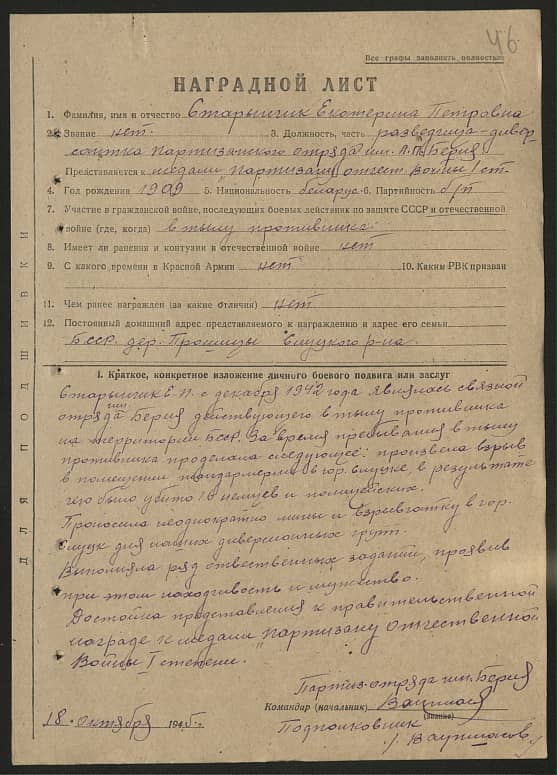 46
Все графы заполнять полностью
НАГРАДНОЙ ЛИСТ
1. Фамилия, имя и отчество Старынчик Екатерина Петровна
2. Звание нет. 3. Должность, часть разведчица-дивер
сантка партизанского отряда им. Л.П. Берия
Представляется к медали партизану отечест. Войны I ст.
4. Год рождения 1909 5. Национальность беларус. 6. Партийность б/п
7. Участие в гражданской войне, последующих боевых действиях по защите СССР и отечественной
войне (где, когда) в тылу противника.
8. Имеет ли ранения и контузии в отечественной войне нет
9. С какого времени в Красной Армии нет 10. Каким РВК призван
11. Чем ранее награжден (за какие отличия) нет
12. Постоянный домашний адрес представляемого к награждению и адрес его семьи
БССР. дер. Прощицы Слуцкого р-на.
I. Краткое, конкретное изложение личного боевого подвига или заслуг
Старынчик Е.П. с декабря 1942 года являлась связной
отряда им Берия действующего в тылу противника
на территории БССР. За время пребывания в тылу
противника проделала следующее: произвела взрыв
в помещении жандармерии в гор. Слуцке, в результате
чего было убито немцев и полицейских.
Проносила неоднократно мины и взрывчатку в гор.
Слуцк для наших диверсионных групп.
Выполняла ряд отвественных заданий, проявив
при этом находчивость и мужество.
Достойна представления к правительственной
награде к медали "Партизану Отечественной
Войны I степени.
Партиз. отряда им. Берия
Командир (начальник)
(звание)
Подполковник
/Ваупшасов/
18 октября 1945 г.
ДЛЯ ПОДШИВКИ